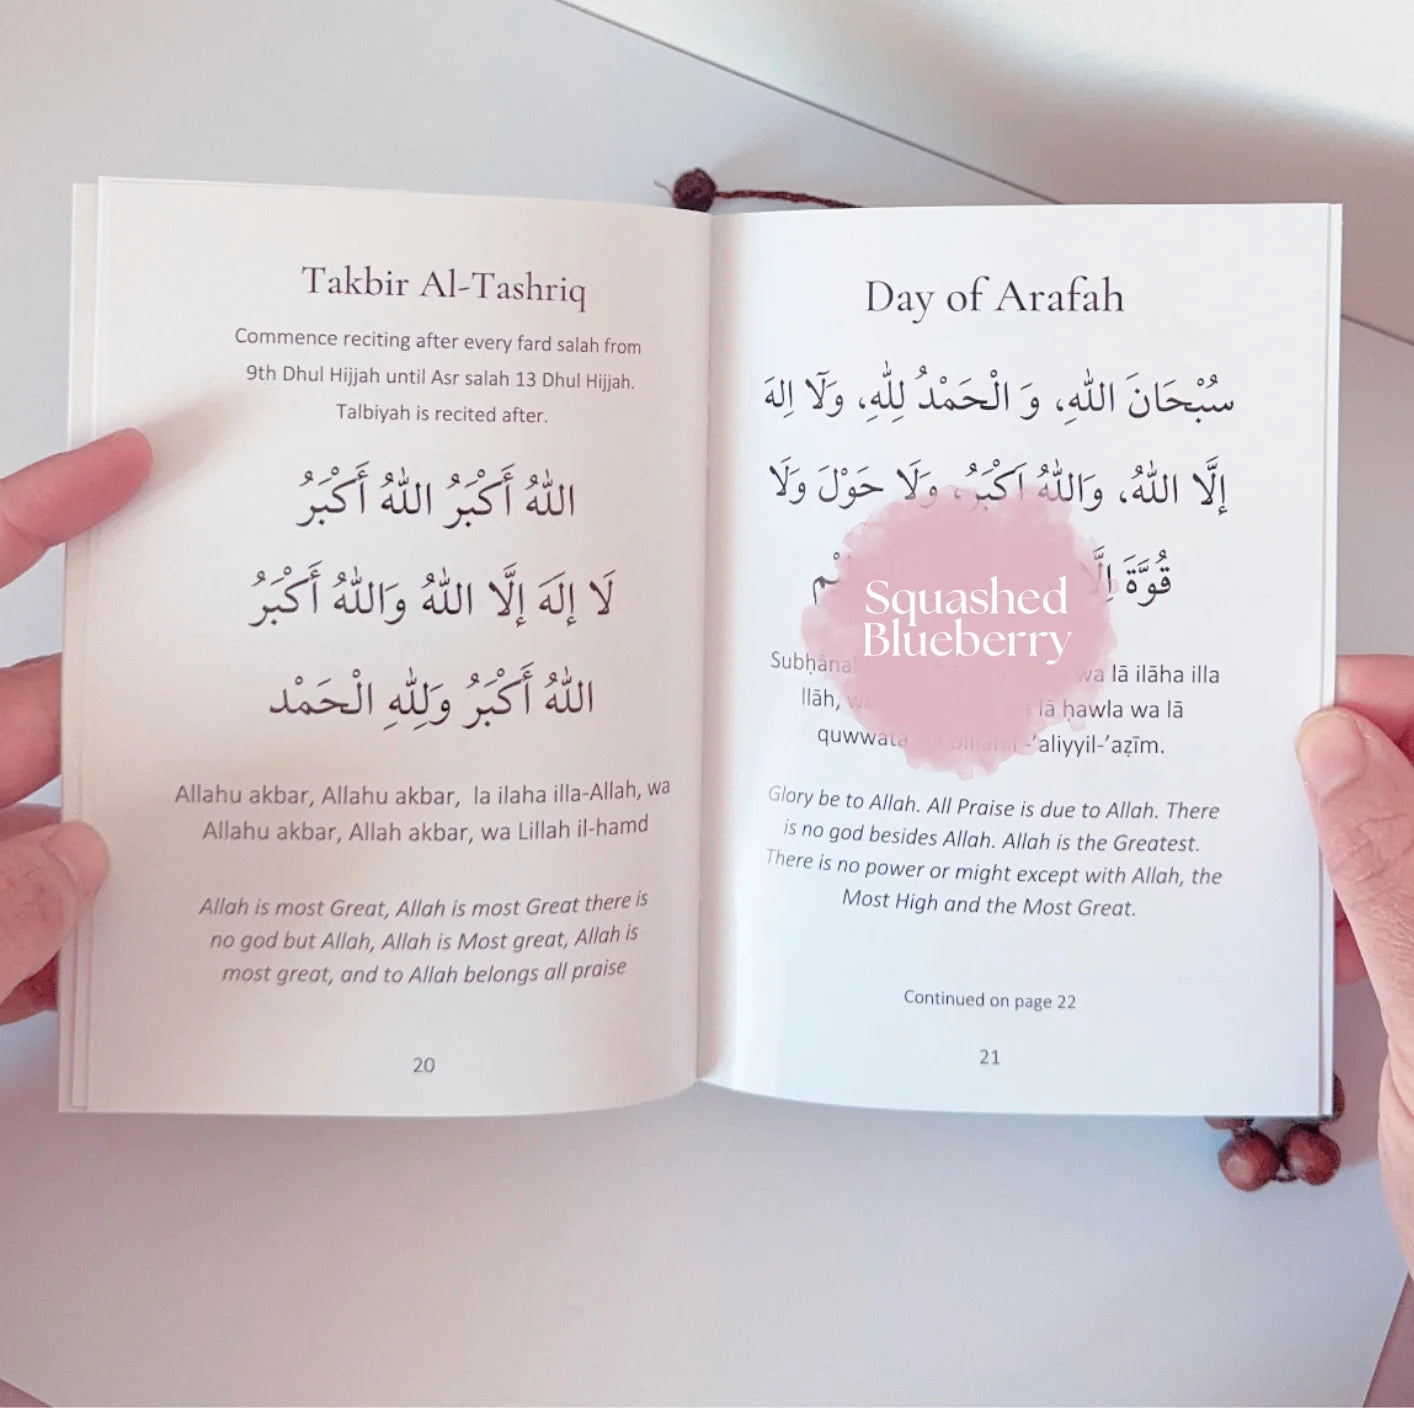 Takbir Al-Tashriq
Commence reciting after every fard salah from
9th Dhul Hijjah until Asr salah 13 Dhul Hijjah.
Talbiyah is recited after.
اللهُ أَكْبَرُ اللهُ أَكْبَرُ
لَا إِلَهَ إِلَّا اللهُ وَاللهُ أَكْبَرُ
اللهُ أَكْبَرُ وَلِلهِ الْحَمْد
Allahu akbar, Allahu akbar, la ilaha illa-Allah, wa
Allahu akbar, Allah akbar, wa Lillah il-hamd
Allah is most Great, Allah is most Great there is
no god but Allah, Allah is Most great, Allah is
most great, and to Allah belongs all praise
20
Day of Arafah
سُبْحَانَ اللهِ، وَ الْحَمْدُ لِلهِ، وَلَآ اِلهَ
إِلَّا اللهُ، وَاللهُ اَكْبَرُ، وَلَا حَوْلَ وَلَا
قُوَّةَ اِلَّا
Squashed
Blueberry
wa lā ilāha illa
llāh, lā ḥawla wa lā
quwwata -'aliyyil-'aẓīm.
Glory be to Allah. All Praise is due to Allah. There
is no god besides Allah. Allah is the Greatest.
There is no power or might except with Allah, the
Most High and the Most Great.
Continued on page 22
21